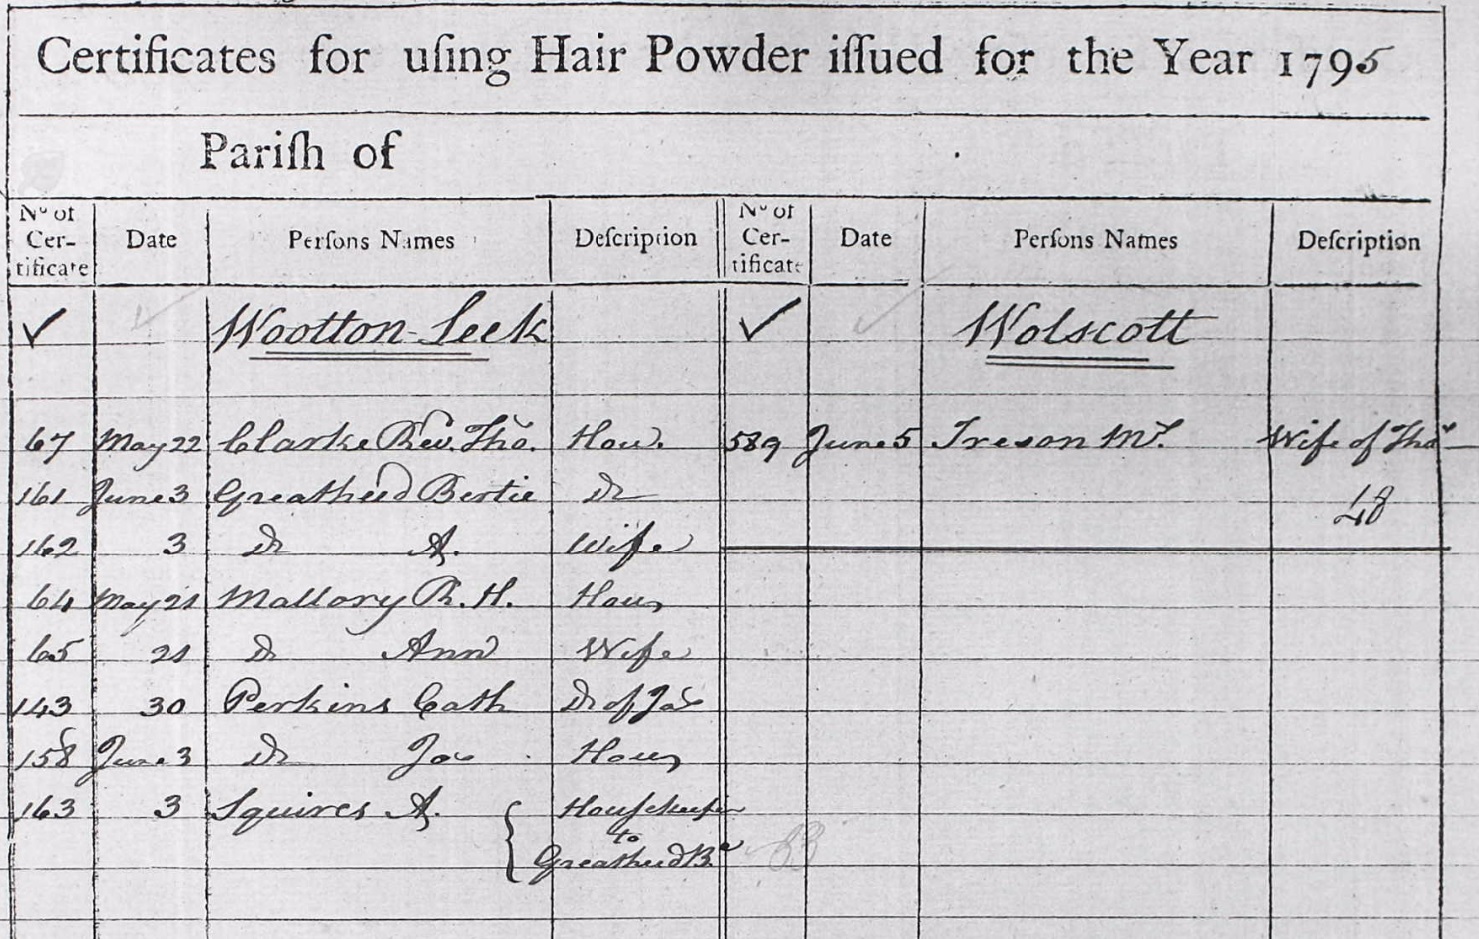 Certificates for uſing Hair Powder iſſued for the Year 1795
Pariſh of
Nº of Certificate Date Perſons Names Deſcription Nº of Certificate Date Perſons Names Deſcription
✓ Wootton Leek ✓ Wolscott
67 May 22 Clarke Rev. Tho. Hou. 589 June 5 Ireson M. Wife of Thoˢ
161 June 3 Greatheed Bertie Dº 48
162 3 Dº A. Wife
64 May 21 Mallory R. H. Hous
65 21 Dº Ann Wife
143 30 Perkins Cath Dr of Jaˢ
158 June 3 Dº Jaˢ Hous
163 3 Squires A. { Houſekeeper
to
Greatheed B.